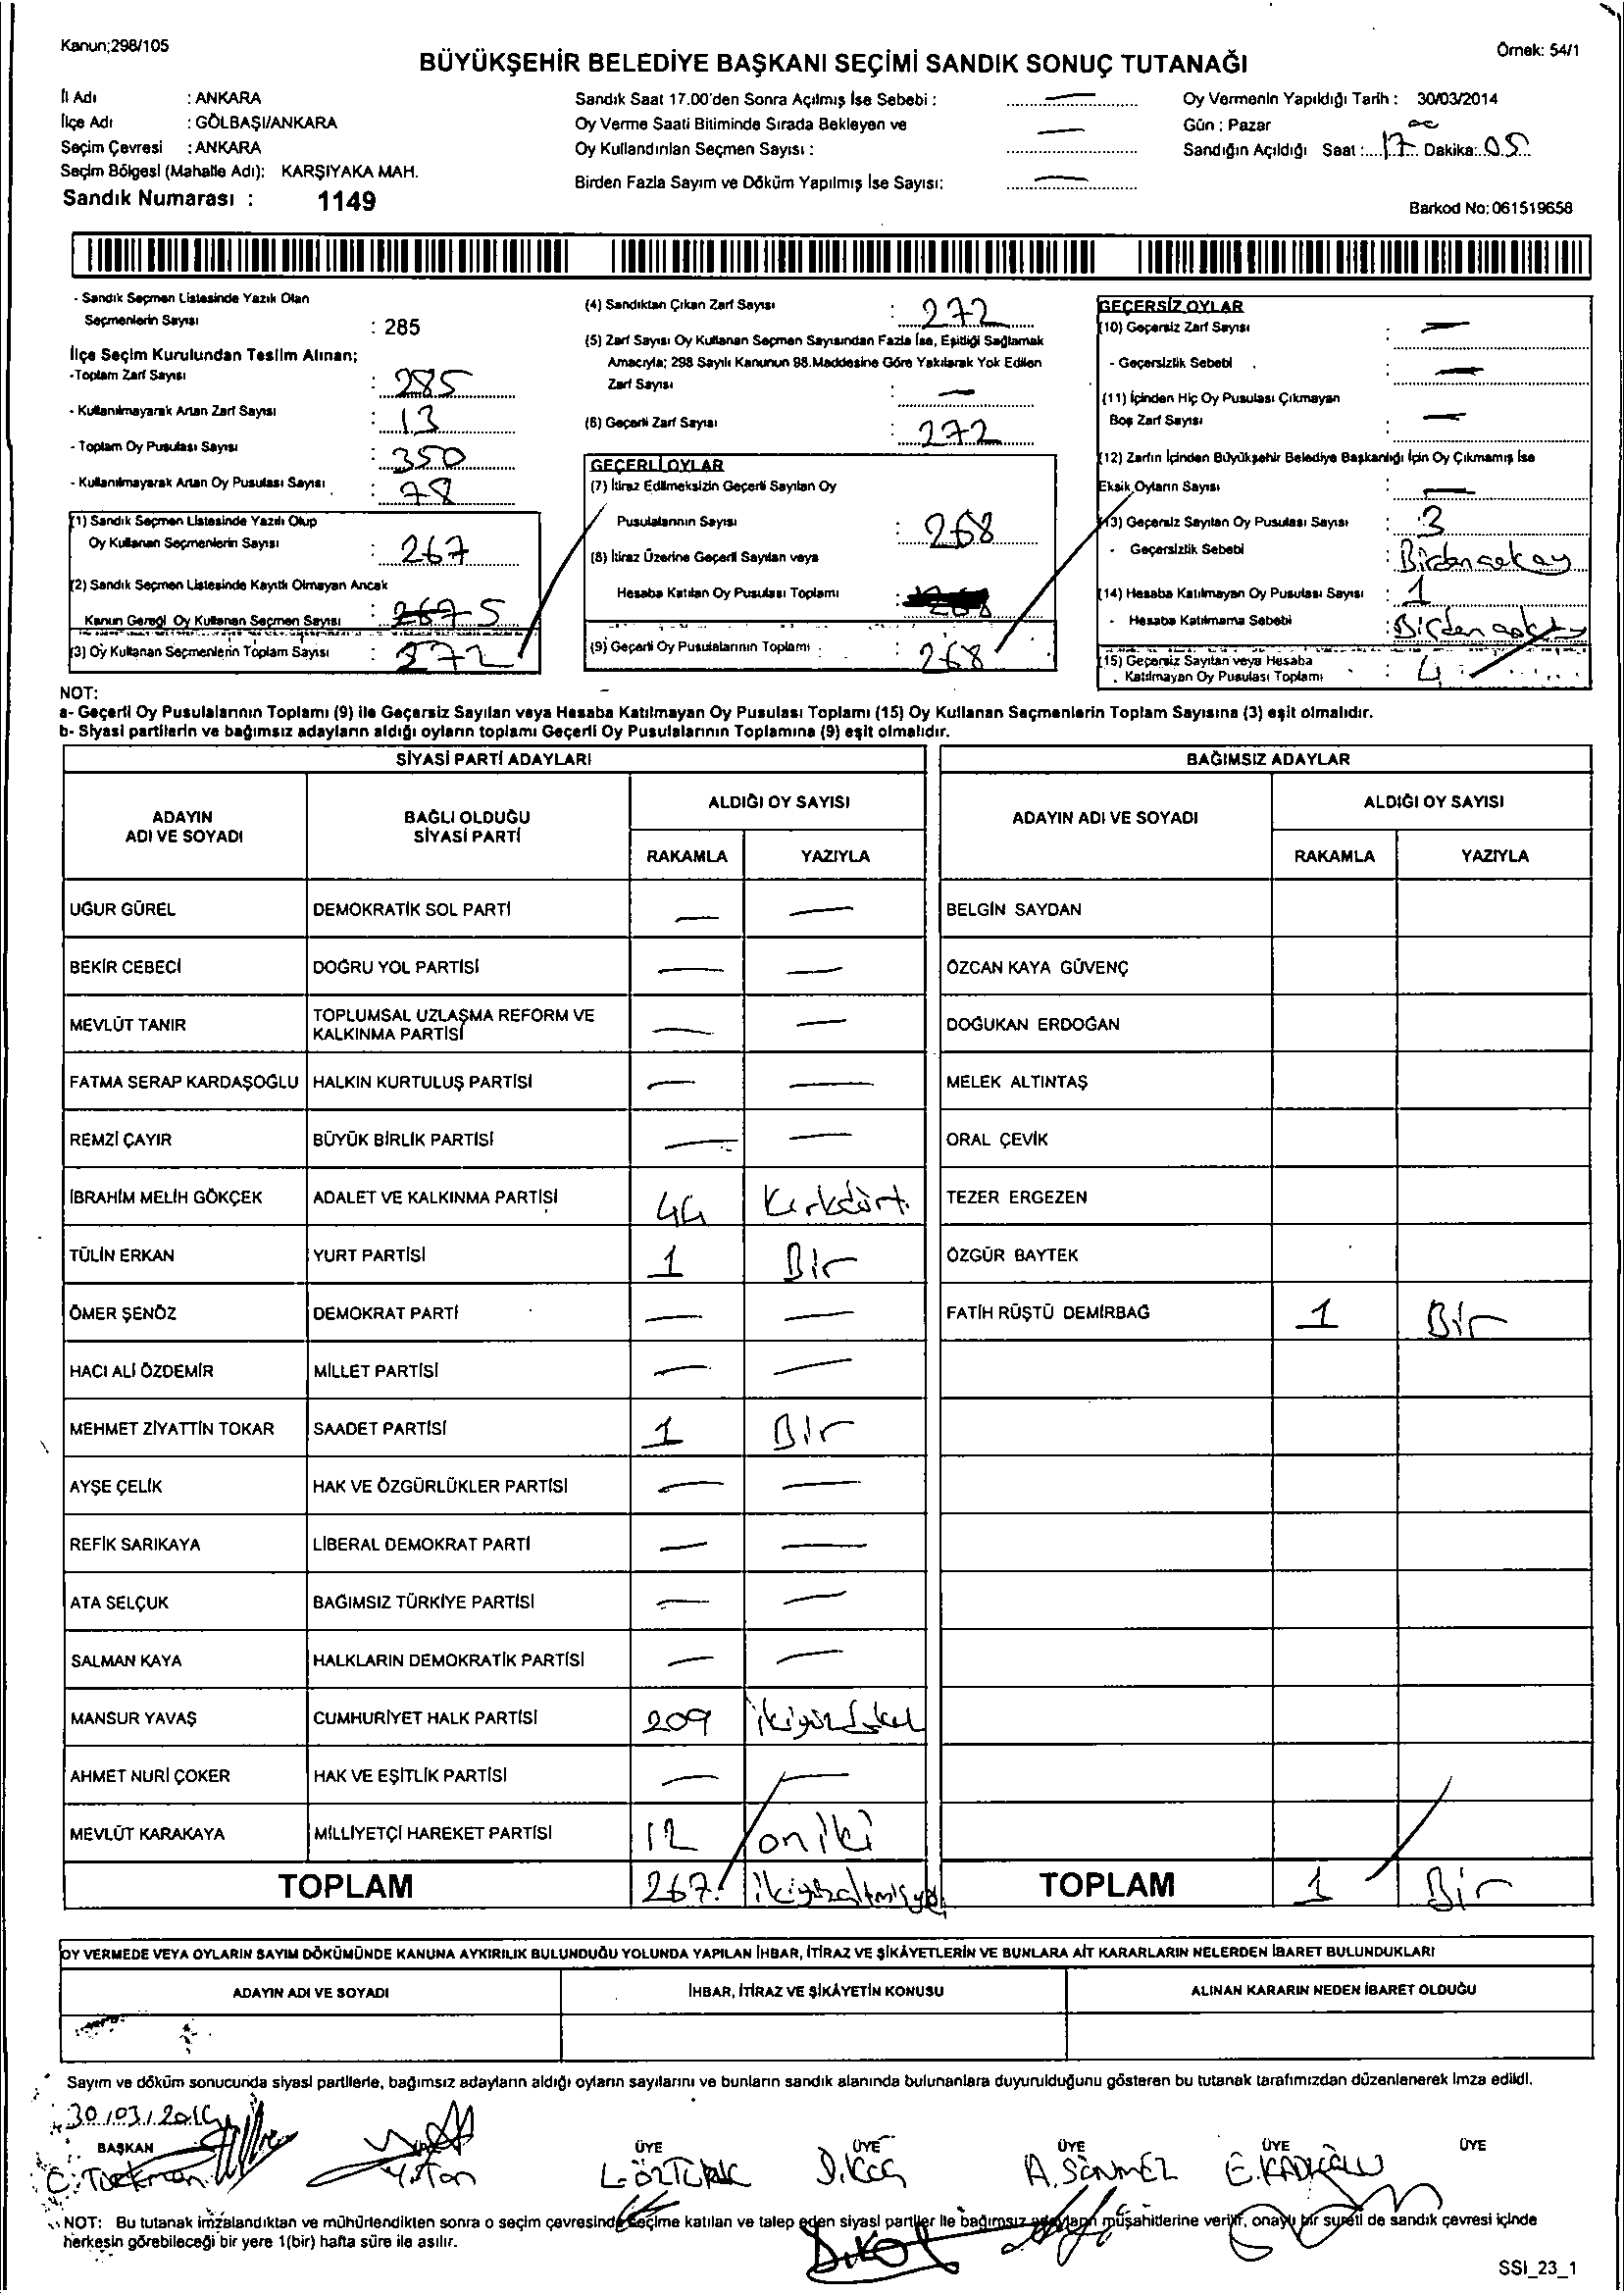 Kanun;298/105
BÜYÜKŞEHİR BELEDİYE BAŞKANI SEÇİMİ SANDIK SONUÇ TUTANAĞI
Örnek: 54/1
İl Adı : ANKARA
İlçe Adı : GÖLBAŞI/ANKARA
Seçim Çevresi : ANKARA
Seçim Bölgesi (Mahalle Adı): KARŞIYAKA MAH.
Sandık Numarası : 1149
Sandık Saat 17.00'den Sonra Açılmış İse Sebebi : —
Oy Verme Saati Bitiminde Sırada Bekleyen ve
Oy Kullandırılan Seçmen Sayısı : —
Birden Fazla Sayım ve Döküm Yapılmış İse Sayısı: —
Oy Vermenin Yapıldığı Tarih : 30/03/2014
Gün : Pazar
Sandığın Açıldığı Saat : 17 Dakika: 05
Barkod No: 061519658
- Sandık Seçmen Listesinde Yazılı Olan
Seçmenlerin Sayısı : 285
İlçe Seçim Kurulundan Teslim Alınan;
-Toplam Zarf Sayısı : 285
- Kullanılmayarak Artan Zarf Sayısı : 13
- Toplam Oy Pusulası Sayısı : 350
- Kullanılmayarak Artan Oy Pusulası Sayısı : 78
(1) Sandık Seçmen Listesinde Yazılı Olup
Oy Kullanan Seçmenlerin Sayısı : 267
(2) Sandık Seçmen Listesinde Kayıtlı Olmayan Ancak
Kanun Gereği Oy Kullanan Seçmen Sayısı : 267 5
(3) Oy Kullanan Seçmenlerin Toplam Sayısı : 272
(4) Sandıktan Çıkan Zarf Sayısı : 272
(5) Zarf Sayısı Oy Kullanan Seçmen Sayısından Fazla İse, Eşitliği Sağlamak
Amacıyla; 298 Sayılı Kanunun 98.Maddesine Göre Yakılarak Yok Edilen
Zarf Sayısı : —
(6) Geçerli Zarf Sayısı : 272
GEÇERLİ OYLAR
(7) İtiraz Edilmeksizin Geçerli Sayılan Oy
Pusulalarının Sayısı : 268
(8) İtiraz Üzerine Geçerli Sayılan veya
Hesaba Katılan Oy Pusulası Toplamı :
(9) Geçerli Oy Pusulalarının Toplamı : 268
GEÇERSİZ OYLAR
(10) Geçersiz Zarf Sayısı : —
- Geçersizlik Sebebi : —
(11) İçinden Hiç Oy Pusulası Çıkmayan
Boş Zarf Sayısı : —
(12) Zarfın İçinden Büyükşehir Belediye Başkanlığı İçin Oy Çıkmamış İse
Eksik Oyların Sayısı : —
(13) Geçersiz Sayılan Oy Pusulası Sayısı : 3
- Geçersizlik Sebebi : Birden çok oy
(14) Hesaba Katılmayan Oy Pusulası Sayısı : 1
- Hesaba Katılmama Sebebi : Birden çok oy
(15) Geçersiz Sayılan veya Hesaba
Katılmayan Oy Pusulası Toplamı : 4
NOT:
a- Geçerli Oy Pusulalarının Toplamı (9) ile Geçersiz Sayılan veya Hesaba Katılmayan Oy Pusulası Toplamı (15) Oy Kullanan Seçmenlerin Toplam Sayısına (3) eşit olmalıdır.
b- Siyasi partilerin ve bağımsız adayların aldığı oyların toplamı Geçerli Oy Pusulalarının Toplamına (9) eşit olmalıdır.
SİYASİ PARTİ ADAYLARI
ADAYIN ADI VE SOYADI BAĞLI OLDUĞU SİYASİ PARTİ ALDIĞI OY SAYISI
RAKAMLA YAZIYLA
UĞUR GÜREL DEMOKRATİK SOL PARTİ — —
BEKİR CEBECİ DOĞRU YOL PARTİSİ — —
MEVLÜT TANIR TOPLUMSAL UZLAŞMA REFORM VE KALKINMA PARTİSİ — —
FATMA SERAP KARDAŞOĞLU HALKIN KURTULUŞ PARTİSİ — —
REMZİ ÇAYIR BÜYÜK BİRLİK PARTİSİ — —
İBRAHİM MELİH GÖKÇEK ADALET VE KALKINMA PARTİSİ 44 Kırkdört.
TÜLİN ERKAN YURT PARTİSİ 1 Bir
ÖMER ŞENÖZ DEMOKRAT PARTİ — —
HACI ALİ ÖZDEMİR MİLLET PARTİSİ — —
MEHMET ZİYATTİN TOKAR SAADET PARTİSİ 1 Bir
AYŞE ÇELİK HAK VE ÖZGÜRLÜKLER PARTİSİ — —
REFİK SARIKAYA LİBERAL DEMOKRAT PARTİ — —
ATA SELÇUK BAĞIMSIZ TÜRKİYE PARTİSİ — —
SALMAN KAYA HALKLARIN DEMOKRATİK PARTİSİ — —
MANSUR YAVAŞ CUMHURİYET HALK PARTİSİ 209
AHMET NURİ ÇOKER HAK VE EŞİTLİK PARTİSİ — —
MEVLÜT KARAKAYA MİLLİYETÇİ HAREKET PARTİSİ 12 oniki
TOPLAM 267. ikiyüzaltmışyedi
BAĞIMSIZ ADAYLAR
ADAYIN ADI VE SOYADI ALDIĞI OY SAYISI
RAKAMLA YAZIYLA
BELGİN SAYDAN
ÖZCAN KAYA GÜVENÇ
DOĞUKAN ERDOĞAN
MELEK ALTINTAŞ
ORAL ÇEVİK
TEZER ERGEZEN
ÖZGÜR BAYTEK
FATİH RÜŞTÜ DEMİRBAĞ 1 Bir
TOPLAM 1 Bir
OY VERMEDE VEYA OYLARIN SAYIM DÖKÜMÜNDE KANUNA AYKIRILIK BULUNDUĞU YOLUNDA YAPILAN İHBAR, İTİRAZ VE ŞİKÂYETLERİN VE BUNLARA AİT KARARLARIN NELERDEN İBARET BULUNDUKLARI
ADAYIN ADI VE SOYADI İHBAR, İTİRAZ VE ŞİKÂYETİN KONUSU ALINAN KARARIN NEDEN İBARET OLDUĞU
Sayım ve döküm sonucunda siyasi partilerle, bağımsız adayların aldığı oyların sayılarını ve bunların sandık alanında bulunanlara duyurulduğunu gösteren bu tutanak tarafımızdan düzenlenerek imza edildi.
30/03/2014
BAŞKAN ÜYE ÜYE ÜYE ÜYE ÜYE
C. Türkmen Y. Tan L. ÖZTÜRK D. KOÇ A. SÖNMEZ E. KADIOĞLU
NOT: Bu tutanak imzalandıktan ve mühürlendikten sonra o seçim çevresinde seçime katılan ve talep eden siyasi partiler ile bağımsız adayların müşahitlerine verilir, onaylı bir sureti de sandık çevresi içinde
herkesin görebileceği bir yere 1(bir) hafta süre ile asılır.
D. KOÇ
SSI_23_1